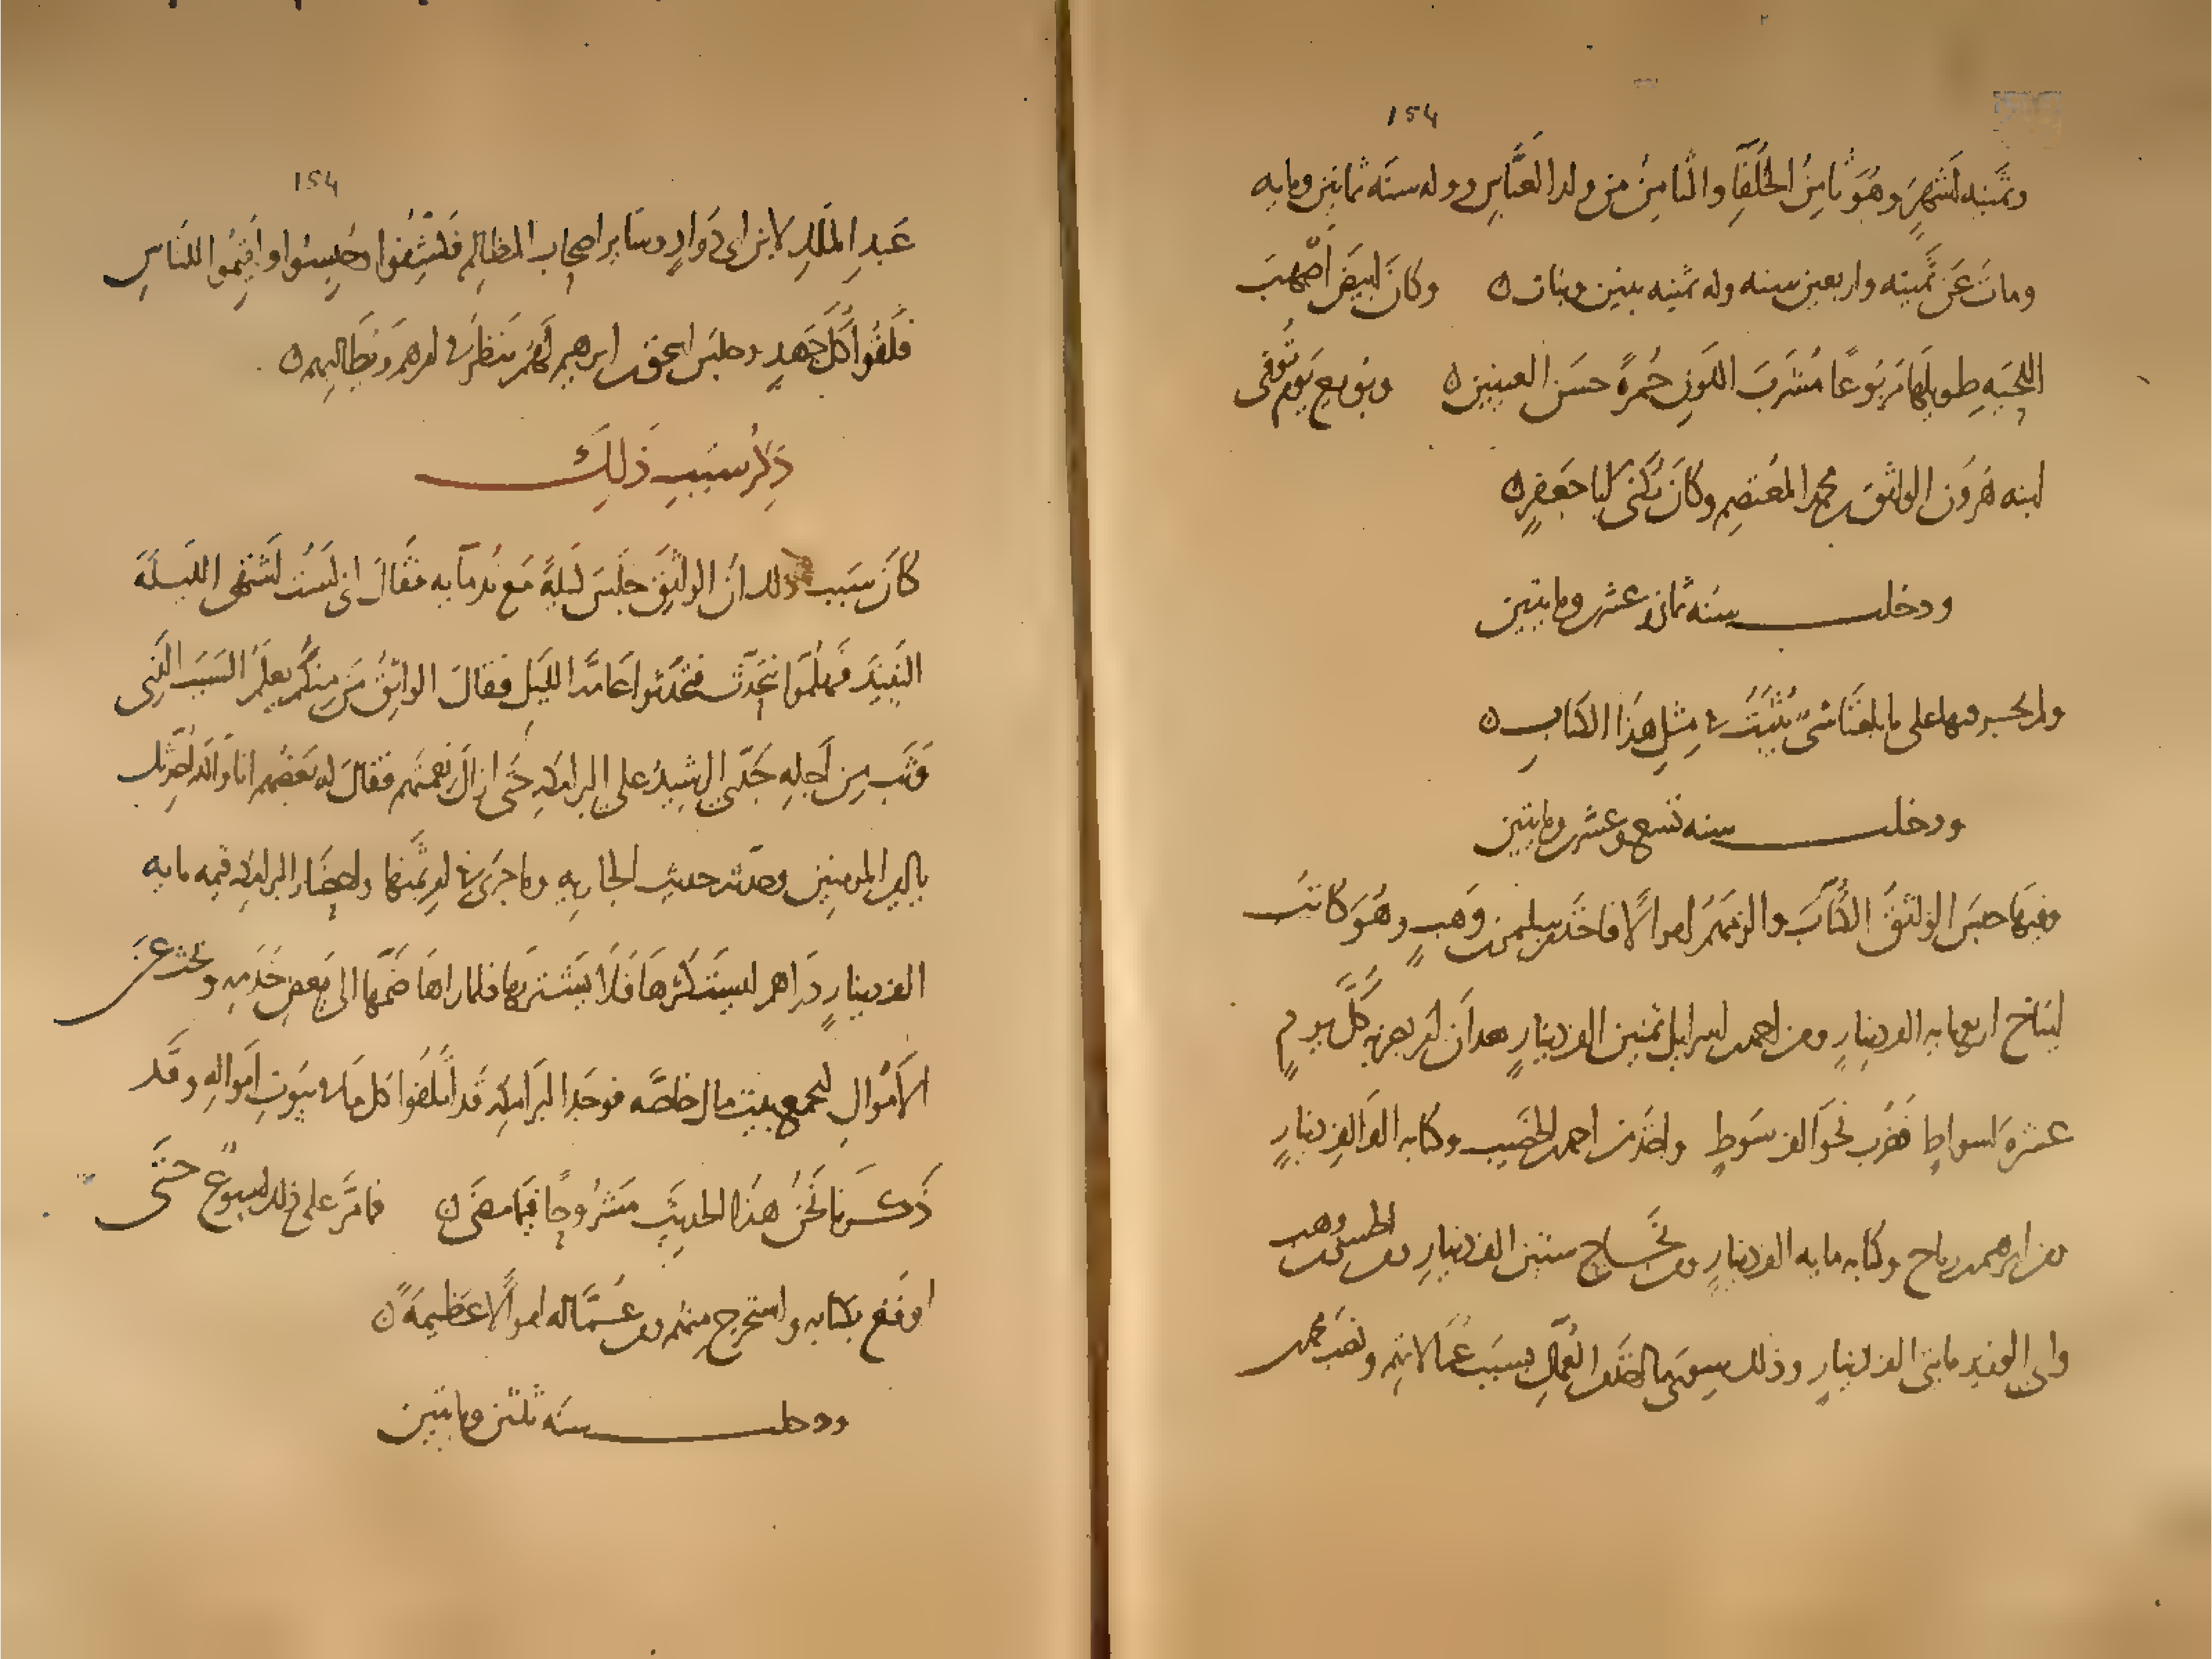 154
وثمنيه اشهر وهو ثامن الخلفا والثامن من ولد العباس وولد سنه ثمانين ومايه
ومات عن ثمنيه واربعين سنه وله ثمنيه بنين وبنات ه وكان ابيض اصهب
اللحيه طويلها مربوعا مشرب اللون حمره حسن العينين ه وبويع يوم توفى
ابنه هرون الواثق بن محمد المعتصم وكان يكنى ابا جعفر ه
ودخلت سنه ثمان وعشرين ومايتين
ولم يجر فيها على ما بلغنا شى يثبت فى مثل هذا الكتاب ه
ودخلت سنه تسع وعشرين ومايتين
وفيها حبس الواثق الكتاب والزمهم اموالا فاخذ من سليمن بن وهب وهو كاتب
ايتاخ اربعمايه الف دينار ومن احمد بن اسرايل ثمنين الف دينار بعد ان امر بضربه كل يوم
عشره اسواط فضرب نحو الف سوط واخذ من احمد بن الخصيب وكتابه الف الف دينار
ومن ابرهيم بن رباح وكتابه مايه الف دينار ومن نجاح ستين الف دينار ومن الحسن بن وهب
وابى الوزير مايتى الف دينار وذلك سوى ما اخذ من العمال بسبب عمالاتهم ونصب محمد بن
154
عبد الملك لابن ابى دواد وساير اصحاب المظالم فكشفوا وحبسوا واقيموا للناس
فلقوا كل جهد وجلس اسحق بن ابرهيم لهم ينظر فى امرهم ويطالبهم ه
ذكر سبب ذلك
كان سبب ذلك ان الواثق جلس ليله مع ندمايه فقال انى لست اشتهى الليله
النبيذ فهلموا نتحدث فتحدثوا عامه الليل فقال الواثق من منكم يعلم السبب الذى
وثب من اجله جدى الرشيد على البرامكه حتى ازال نعمتهم فقال له بعضهم انا والله احدثك
يا امير المومنين وحدثه حديث الجاريه وما جرى فى امر ثمنها واحضار البرامكه قيمه مايه
الف دينار دراهم ليستكثرها فلا يشتريها فلما راها ضمها الى بعض خدمه وبحث عن
الاموال ليجمع بيت مال خاصه فوجد البرامكه قد اتلفوا كل ما فى بيوت امواله وقد
ذكرنا نحن هذا الحديث مشروحا فيما مضى ه فما مر على ذلك اسبوع حتى
اوقع بكتابه واستخرج منهم ومن عماله اموالا عظيمه ه
ودخلت سنه ثلثين ومايتين